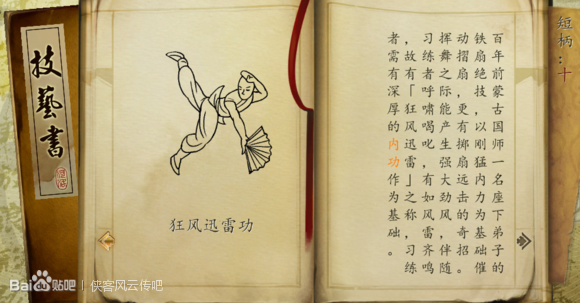 短柄：十
百年前蒙古国师一名座下弟子的
铁扇绝技，以刚猛内力为基础催
动摺扇，更有掷扇远击的奇招。
挥舞之际，能产生强大劲风，伴随
习练者呼啸喝叱，有如风雷齐鸣
，故有「狂风迅雷」之称。习练
者需有深厚的内功作为基础。
技藝書
狂风迅雷功
Bai贴吧 | 侠客风云传吧